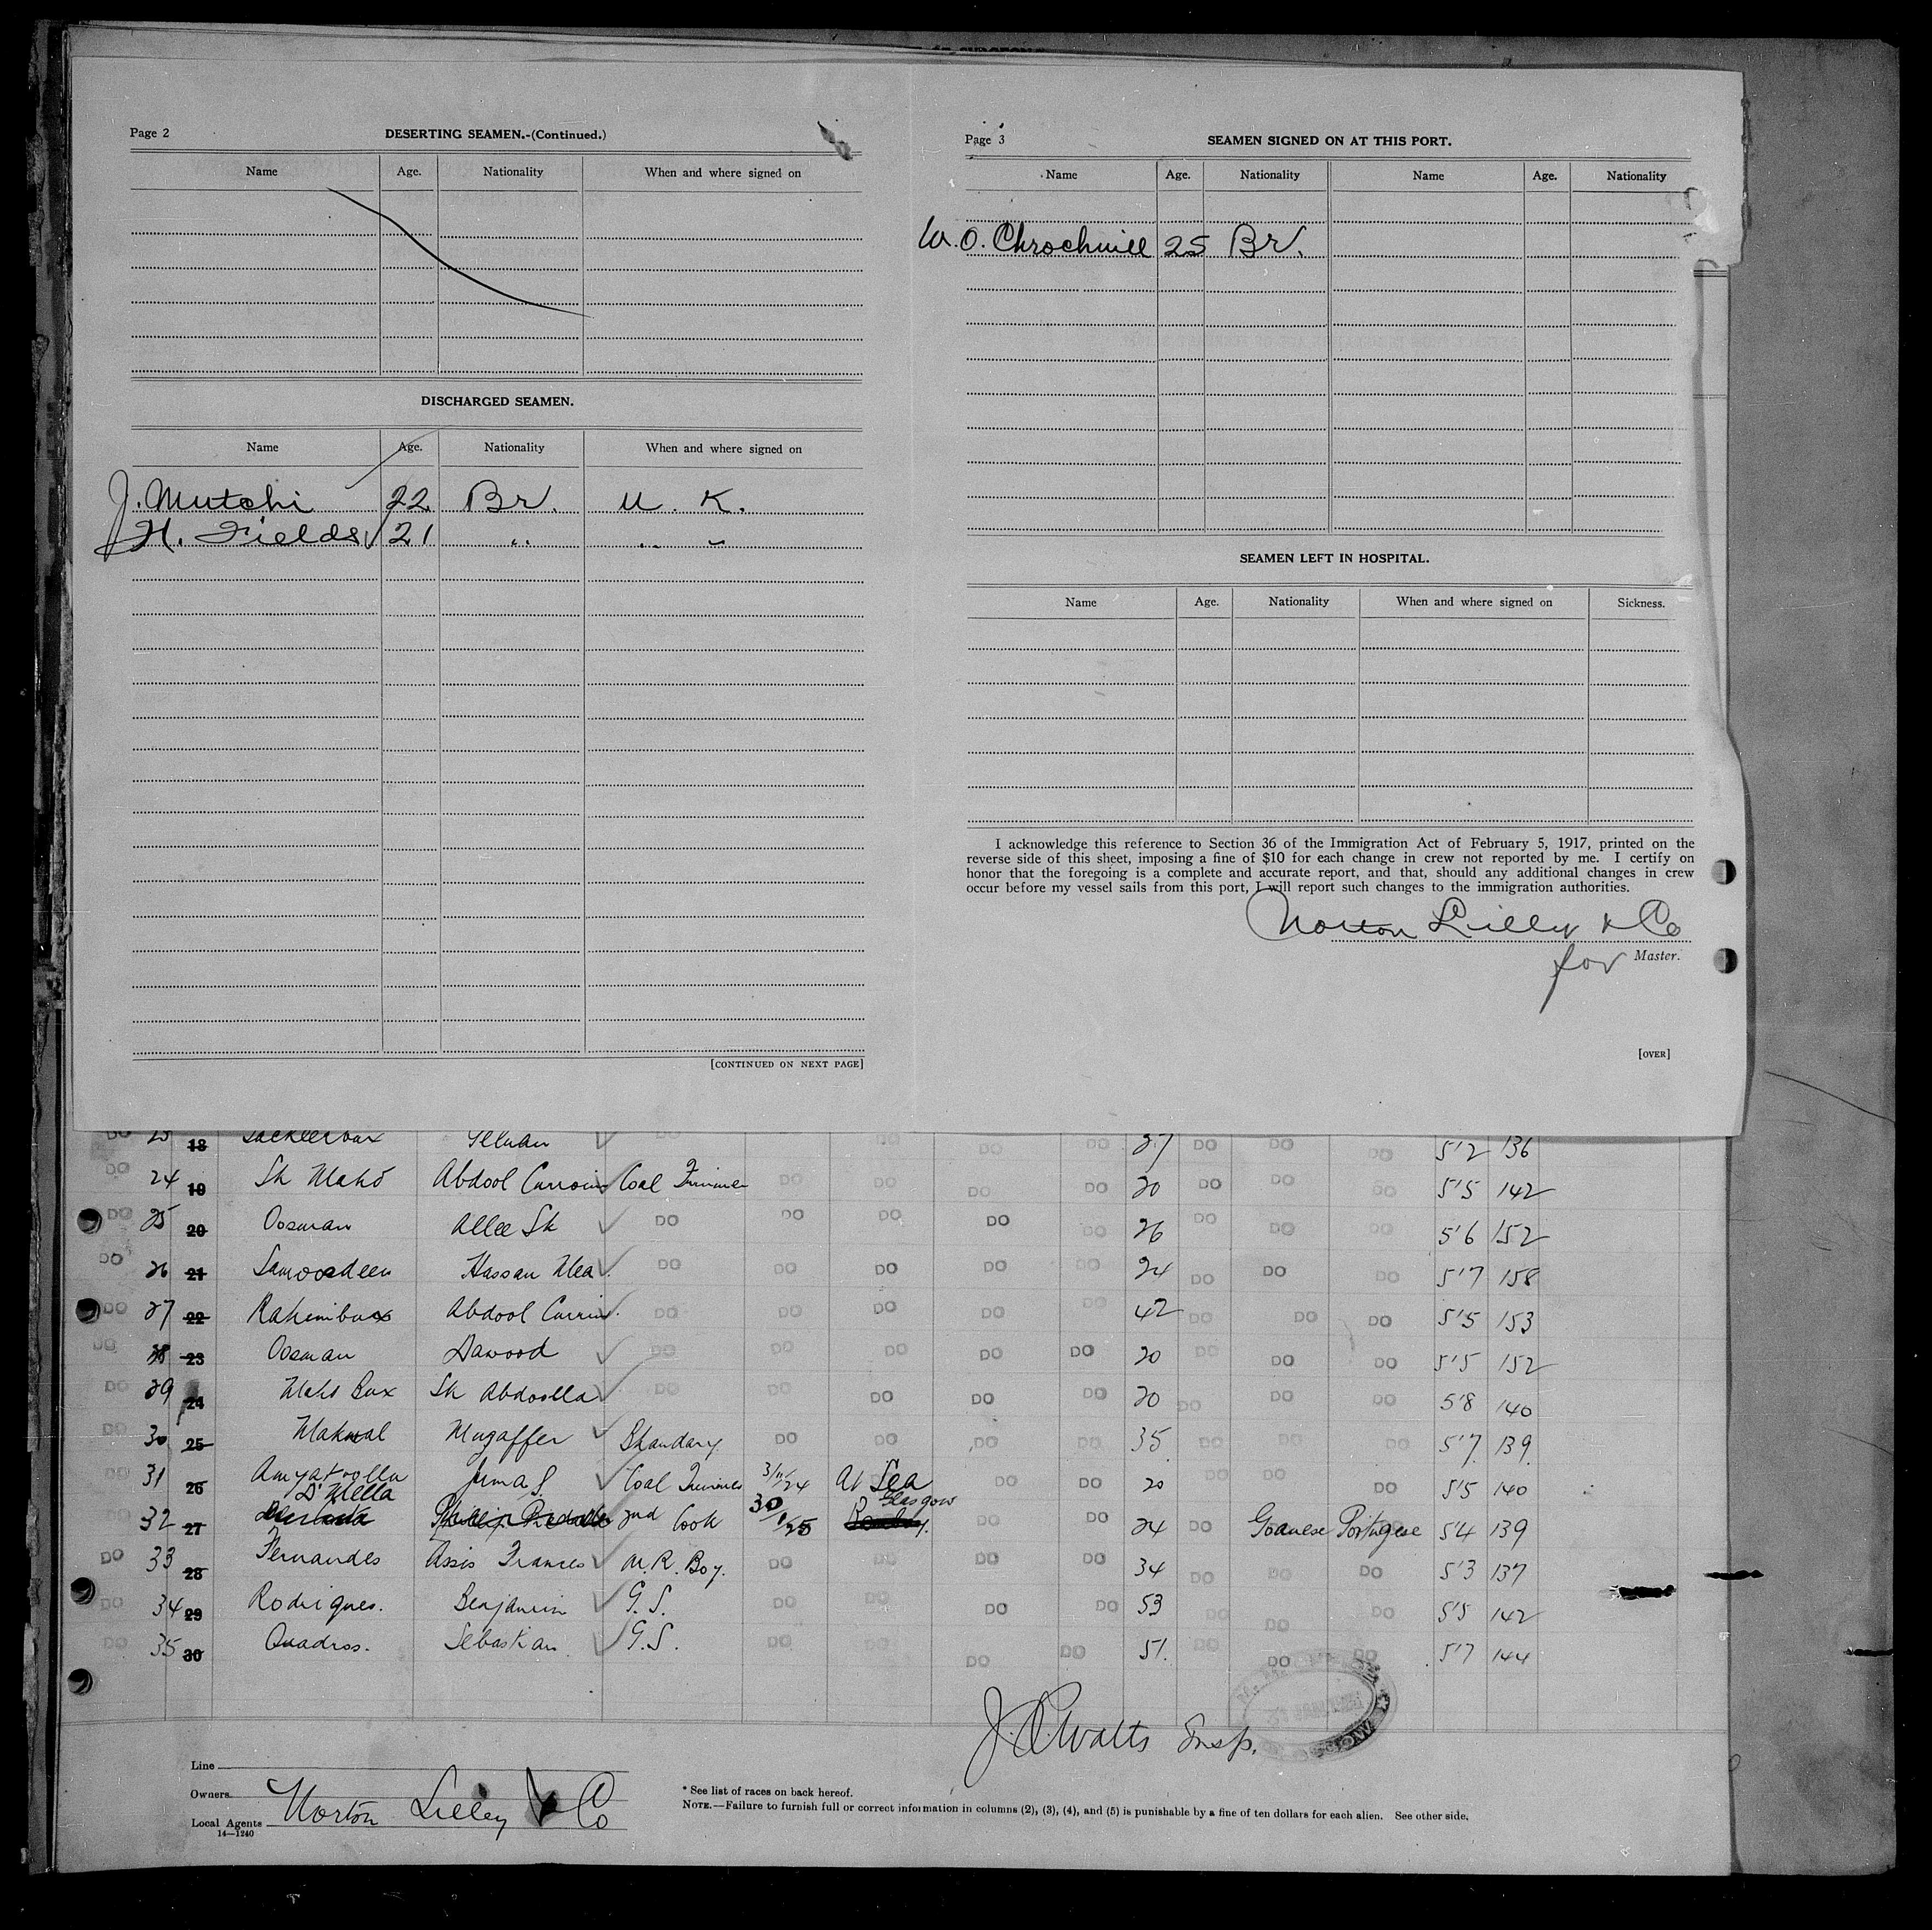 Page 2
DESERTING SEAMEN.-(Continued.)
Name Age. Nationality When and where signed on
DISCHARGED SEAMEN.
Name Age. Nationality When and where signed on
J. Mutchi 22 Br. U. K.
H. Fields 21 " " "
[CONTINUED ON NEXT PAGE]
Page 3
SEAMEN SIGNED ON AT THIS PORT.
Name Age. Nationality Name Age. Nationality
W. O. Chrochwill 25 Br.
SEAMEN LEFT IN HOSPITAL.
Name Age. Nationality When and where signed on Sickness.
I acknowledge this reference to Section 36 of the Immigration Act of February 5, 1917, printed on the
reverse side of this sheet, imposing a fine of $10 for each change in crew not reported by me. I certify on
honor that the foregoing is a complete and accurate report, and that, should any additional changes in crew
occur before my vessel sails from this port, I will report such changes to the immigration authorities.
Norton Lilly & Co
for Master.
[OVER]
DO 18 DO DO DO DO 27 DO DO DO 5'2 136
DO 24 19 Sk Mahd Abdool Coal Trimmer DO DO DO DO 20 DO DO DO 5'5 142
DO 25 20 Oosman Allee Sk DO DO DO DO DO 26 DO DO DO 5'6 152
DO 26 21 Samoodeen Hassan DO DO DO DO DO 24 DO DO DO 5'7 158
DO 27 22 Rahimbux Abdool DO DO DO DO DO 42 DO DO DO 5'5 153
DO 28 23 Oosman Dawood DO DO DO DO DO 20 DO DO DO 5'5 152
DO 29 24 Mahd Bux Sk Abdoolla DO DO DO DO DO 20 DO DO DO 5'8 140
DO 30 25 Makwal Mugaffer Bhandary DO DO DO DO 35 DO DO DO 5'7 139
DO 31 26 Amyatoolla Juma S. Coal Trimmer 24 At Sea DO DO 20 DO DO DO 5'5 140
D'Mella Glasgow
DO 32 27 2nd Cook 30/1/25 DO DO 24 DO Goanese Portugese 5'4 139
DO 33 28 Fernandes Assis Frances M. R. Boy. DO DO DO DO 34 DO DO DO 5'3 137
DO 34 29 Rodrigues. Benjamin G. S. DO DO DO DO 53 DO DO DO 5'5 142
DO 35 30 Quadros. Sebastian G. S. DO DO DO 51. DO DO DO 5'7 144
J. Watts Insp.
Line
Owners
Local Agents Norton Lilley & Co
14—1240
* See list of races on back hereof.
NOTE.—Failure to furnish full or correct information in columns (2), (3), (4), and (5) is punishable by a fine of ten dollars for each alien. See other side.